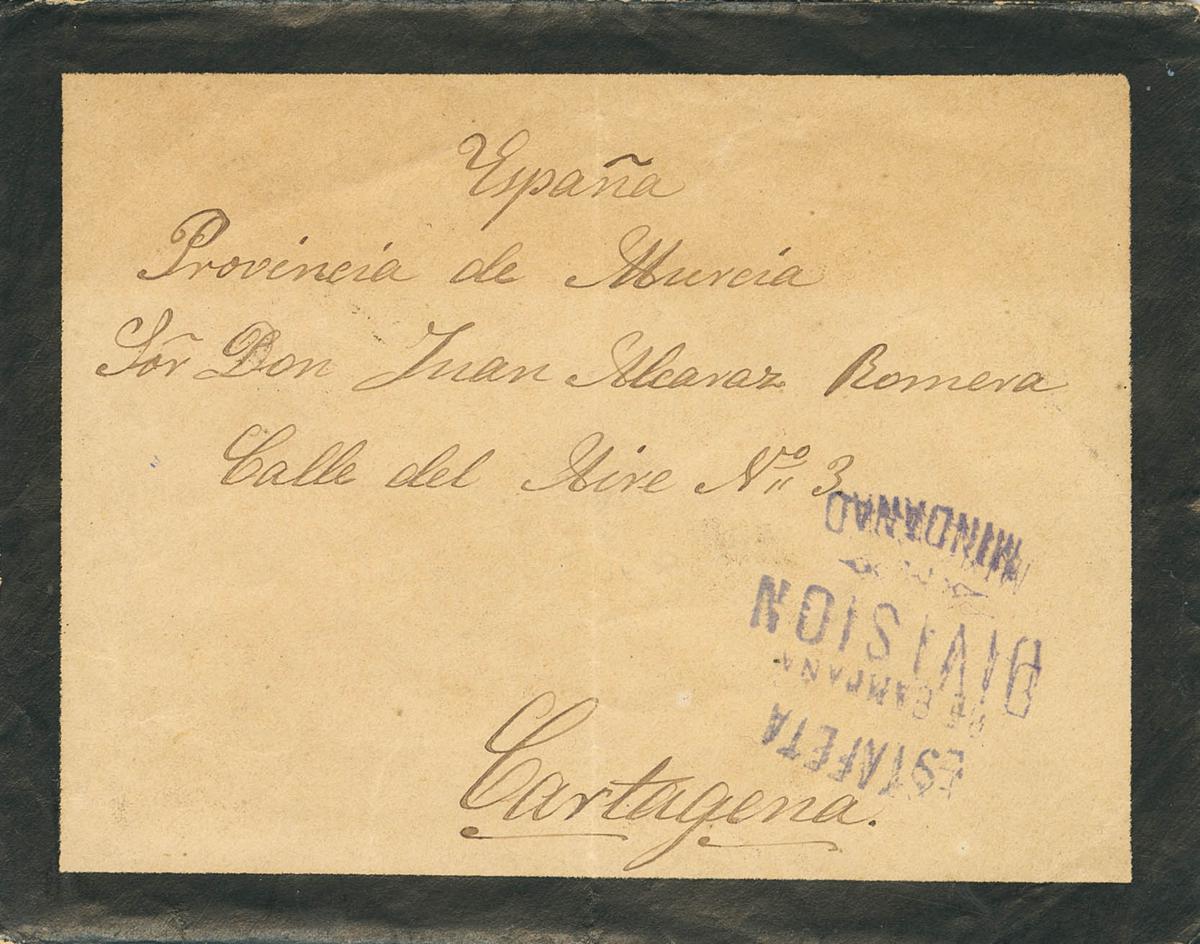 España
Provincia de Murcia
Sőr Don Juan Alcaraz Romera
Calle del Aire Nº 3
Cartagena.
ESTAFETA
DE CAMPAÑA
DIVISION
MINDANAO